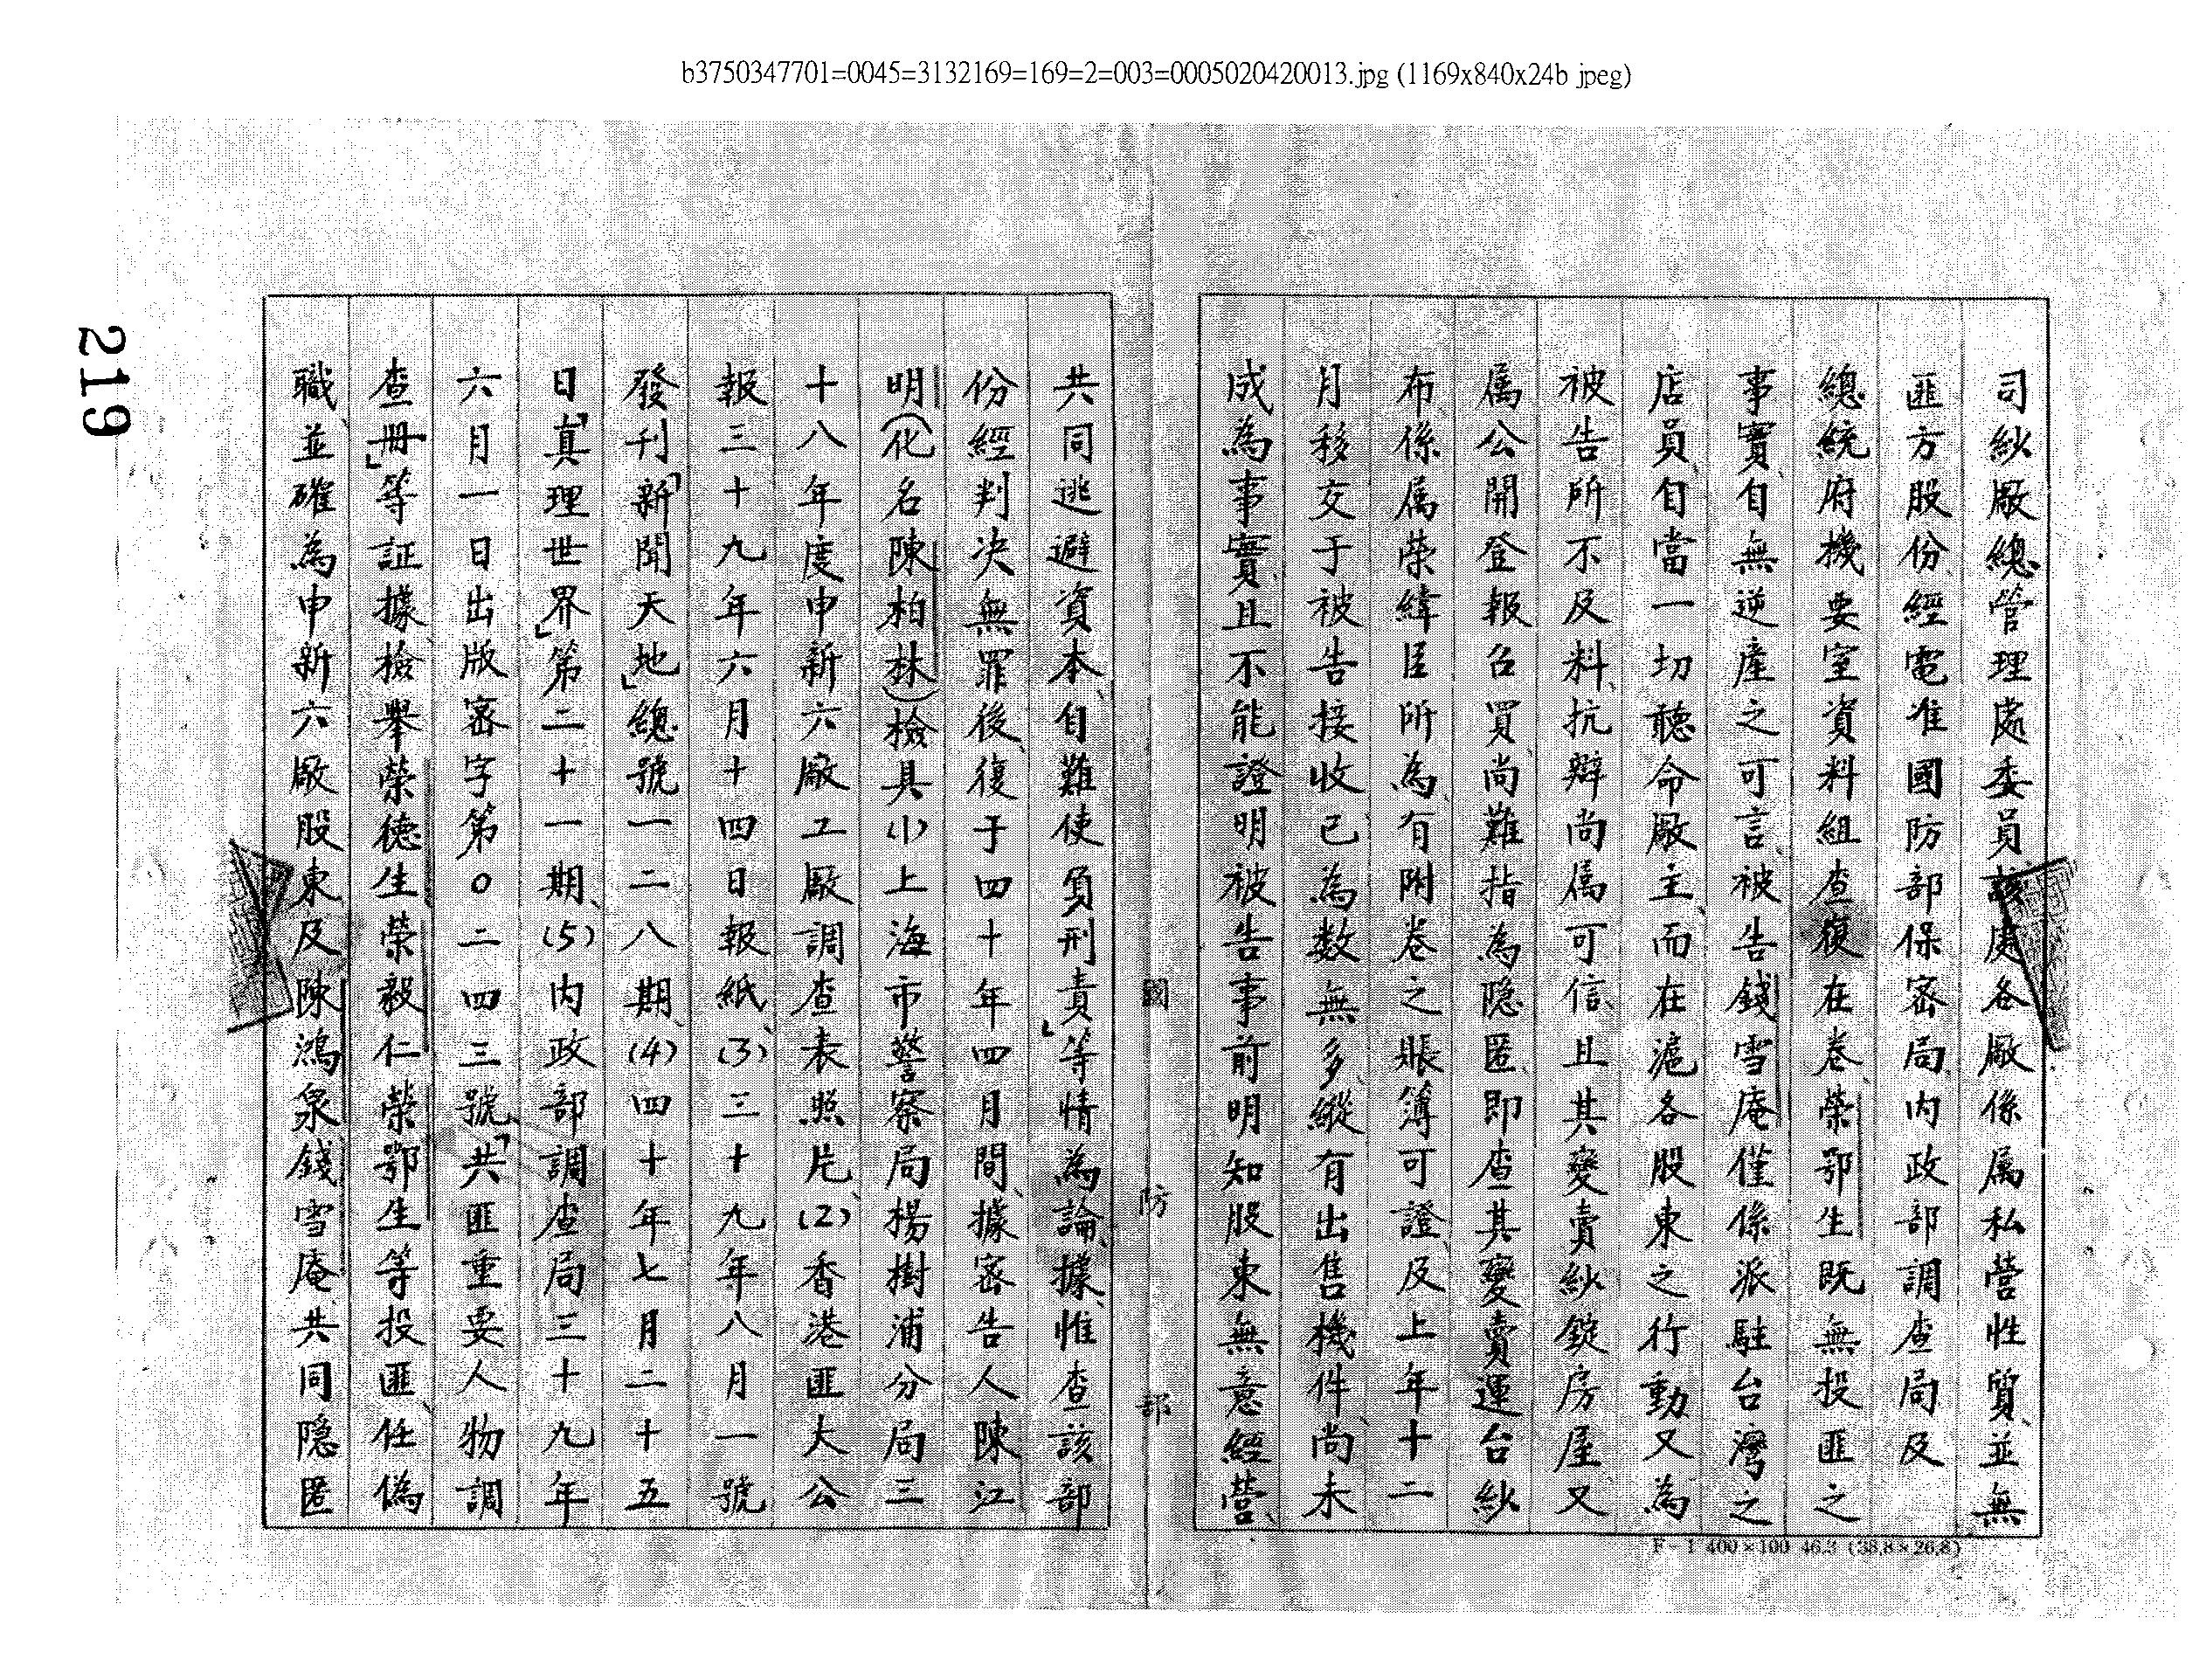 b3750347701=0045=3132169=169=2=003=0005020420013.jpg (1169x840x24b jpeg)
司紗廠總管理處委員該處各廠係属私營性質、並無
匪方股份、經電准國防部保密局、內政部調查局及
總統府機要室資料組查復在卷、榮鄂生既無投匪之
事實、自無逆產之可言、被告錢雪庵僅係派駐台灣之
店員、自當一切聽命廠主、而在滬各股東之行動又為
被告所不及料、抗辯尚属可信、且其變賣紗錠房屋又
属公開登報召買、尚難指為隐匿、即查其變賣運台紗
布、係属榮緯臣所為、有附卷之賬簿可證、及上年十二
月移交于被告接收、已為数無多、縱有出售機件、尚未
成為事實、且不能證明被告事前明知股東無意經營、
國防部
共同逃避資本、自難使負刑責」等情為論據、惟查該部
份經判决無罪後、復于四十年四月間、據密告人陳江
明(化名陳柏林)檢具(1)上海市警察局楊樹浦分局三
十八年度申新六廠工厰調查表照片、(2)香港匪大公
報三十九年六月十四日報紙、(3)三十九年八月一號
發刊「新聞天地」總號一二八期、(4)四十年七月二十五
日「真理世界」第二十一期、(5)內政部調查局三十九年
六月一日出版密字第0二四三號、「共匪重要人物調
查冊」等証據、檢舉榮德生榮毅仁榮鄂生等投匪、任偽
職、並確為申新六廠股東及陳鴻泉錢雪庵共同隐匿
219
F-1 400×100 46.3 (38.8×26.8)